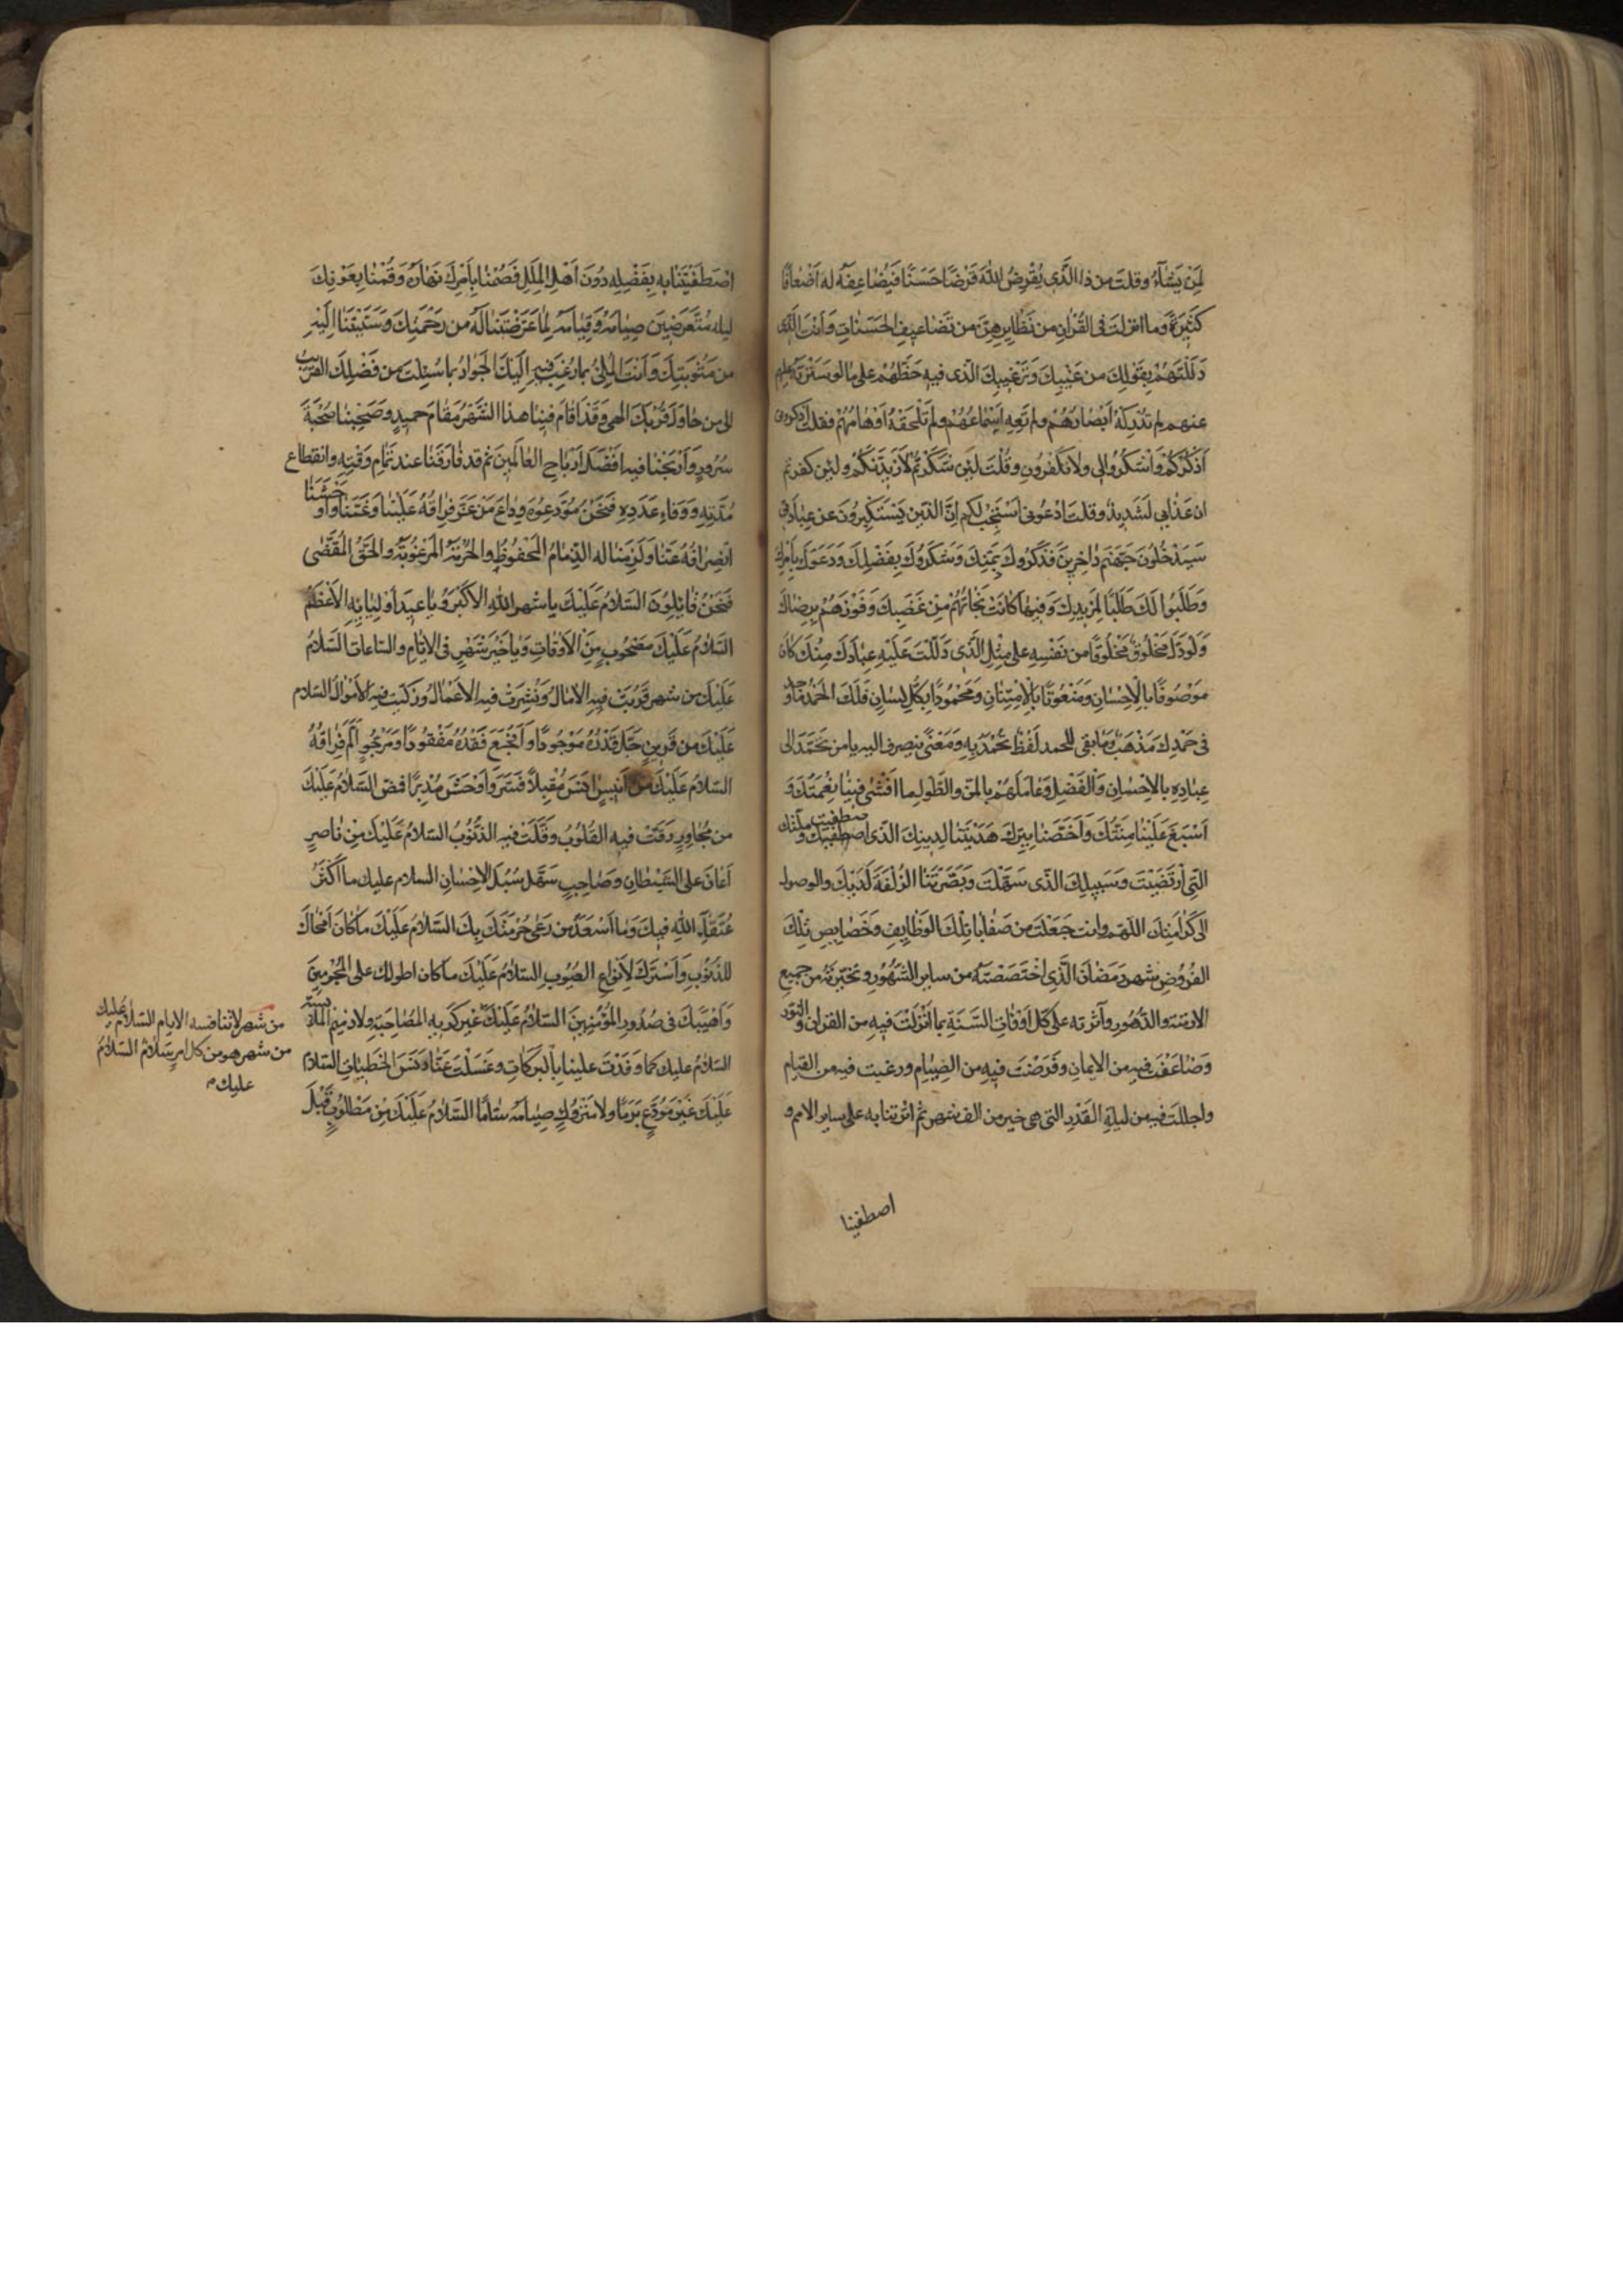 لِمَنْ يَشَآءُ وقلتَ من ذا الَّذِي يُقْرِضُ اللهَ قَرْضًا حَسَنًا فَيُضَاعِفَهُ له اَضْعافًا
كَثِيرَةً وما انزلتَ فى القُرْانِ من نَظَايرِهِنَّ من تَضَاعيفِ الحَسَنَاتِ وَاَنتَ الَّذى
دَلَلْتَهُمْ بِقَوْلِكَ من غَيْبِكَ وَتَرْغيبِكَ الّذى فيهِ حَظُّهُمْ على ما لو سَتَرْتَهُ
عنهم لم تُدْرِكْهُ اَبْصَارُهُمْ ولم تَعِهِ اَسْمَاعُهُمْ ولَمْ تَلْحَقْهُ اَوْهَامُهُمْ فقلتَ اذكرونى
اَذْكُرْكُمْ وَاشْكُرُوا لى ولا تَكْفُرُونِ وقُلْتَ لَئِن شَكَرْتُمْ لَاَزِيدَنَّكُمْ ولَئِن كفرتم
ان عَذَابى لَشَدِيدٌ وقلتَ ادْعُونى اَسْتَجِبْ لكم اِنَّ الّذين يَسْتَكْبِرُونَ عن عِبَادَتى
سَيَدْخُلُونَ جَهَنَّمَ دَاخِرِينَ فَذَكَرُوكَ بِمَنِّكَ وَشَكَرُوكَ بِفَضْلِكَ وَدَعَوْكَ بِاَمْرِكَ
وَتَصَدَّقُوا لَكَ طَلَبًا لِمَزيدِكَ وَفيها كَانَتْ نَجَاتُهُمْ مِنْ غَضَبِكَ وَفَوْزُهُمْ بِرِضَاكَ
وَلَو دَلَّ مَخْلُوقٌ مَخْلُوقًا من نَفْسِهِ على مِثْلِ الَّذى دَلَلْتَ عَلَيْهِ عِبَادَكَ مِنْكَ كَانَ
مَوْصُوفًا بالْاِحْسَانِ وَمَنْعُوتًا بالْاِمْتِنَانِ وَمَحْمُودًا بكُلِّ لِسَانٍ فَلَكَ الحَمْدُ ما وجد
فى حَمْدِكَ مَذْهَبٌ وما بقى للحمد لَفْظٌ تُحْمَدُ بِهِ وَمَعْنًى ينصرف اليه يا من تَحَمَّدَ الى
عِبَادِهِ بالاِحْسَانِ وَالفَضْلِ وَعَامَلَهُمْ بالمَنِّ والطَّوْلِ ما اَفْشَى فينا نِعْمَتَكَ وَ
اَسْبَغَ عَلَيْنا مِنَّتَكَ وَاَخَصَّنا بِبِرِّكَ هَدَيْتَنا لِدينِكَ الّذى اصطفيت وملّتك
الّتى ارْتَضَيْتَ وَسَبيلِكَ الّذى سَهَّلْتَ وَبَصَّرْتَنَا الزُّلْفَةَ لَدَيْكَ والوصول
الى كَرَامَتِكَ اللّهمّ وانت جَعَلْتَ من صَفَايَا تِلْكَ الوَظَايِفِ وَخَصَايِصِ تِلْكَ
الفُرُوضِ شهر رَمَضَانَ الَّذِى اخْتَصَصْتَهُ من ساير الشُّهُورِ وتخيّرتَهُ من جميع
الازمنة والدُّهُورِ وآثرته على كل اَوْقَاتِ السَّنَةِ بما اَنْزَلْتَ فيهِ من القرانِ والنّور
وَضَاعَفْتَ فيه من الايمانِ وَفَرَضْتَ فِيهِ من الصِّيَامِ ورغبت فيه من القيام
واجللت فيه من ليلةِ القَدْرِ التى هى خير من الف شهر ثم اثرتنا به على ساير الامم و
اصطفيتنا
اصْطَفَيْتَنا به بِفَضْلِهِ دُونَ اَهْلِ المِلَلِ فَصُمْنا بِاَمْرِكَ نَهَارَهُ وَقُمْنا بِعَوْنِكَ
ليله مُتَعَرِّضينَ صِيامِهِ وَقِيَامِهِ لِمَا عَرَّضْتَنا لَهُ من رَحْمَتِكَ وَسَبَّبْتَنَا اِلَيْهِ
من مَثُوبَتِكَ وَاَنتَ المَلِىُّ بما رُغِبَ فيهِ اِلَيْكَ الجَوَادُ بما سُئِلْتَ من فَضْلِكَ القريب
الى من حَاوَلَ قُرْبَكَ الهى وَقَدْ اَقَامَ فينَا هذا الشَّهْرُ مَقَامَ حميدٍ وصَحِبَنا صُحْبَةَ
سُرُورٍ وَاَرْبَحَنا فيه اَفْضَلَ اَرْبَاحِ العَالَمينَ ثم قد فَارَقَنا عند تَمَامِ وَقْتِهِ وانقطاع
مُدَّتِهِ وَوَفاءِ عَدَدِهِ فَنَحْنُ مُوَدِّعُوهُ وِدَاعَ مَنْ عَزَّ فِرَاقُهُ عَلَيْنا وَغَمَّنا وَاَوْحَشَنَا
انْصِرَافُهُ عَنَّا وَلَزِمَنا له الذِّمَامُ المَحْفُوظُ والحُرْمَةُ المَرْعُوَّةُ والحَقُّ المَقْضِى
فَنَحْنُ قَائِلُونَ السَّلامُ عَلَيْكَ يا شهر اللهِ الاَكْبَرَ ويَا عيدَ اَوْلِيَائِهِ الاَعْظَمَ
السَّلامُ عَلَيْكَ مَصْحُوبٍ مِنَ الاَوْقَاتِ وَيَا خَيْرَ شَهْرٍ فى الايّامِ والسَّاعاتِ السَّلامُ
عَلَيْكَ من شهر قَرُبَتْ فيهِ الاٰمَالُ وَنُشِرَتْ فيه الاَعْمَالُ وزكّيت فيه الاَمْوالُ السّلام
عَلَيْكَ من قَرينٍ جَلَّ قَدْرُهُ مَوْجُودًا وَاَفْجَعَ فَقْدُهُ مَفْقُودًا وَمَرْجُوٍّ آلَمَ فِرَاقُهُ
السّلامُ عَلَيْكَ من اَنيسٍ انَسَ مُقْبِلًا فَسَرَّ وَاَوْحَشَ مُدْبِرًا فمضّ السَّلامُ عَلَيْكَ
من مُجاوِرٍ رَقَّتْ فيهِ القُلُوبُ وقَلَّتْ فيه الذُّنُوبُ السّلامُ عَلَيْكَ مِنْ نَاصِرٍ
اَعَانَ على الشَّيْطَانِ وصَاحِبٍ سَهَّلَ سُبُلَ الاِحْسَانِ السلام عليك ما اَكْثَرَ
عُتَقَآءَ اللهِ فيكَ وَمَا اَسْعَدَ من رَعَى حُرْمَتَكَ بِكَ السَّلامُ عَلَيْكَ ماكَانَ اَمْحَاكَ
للذُّنُوبِ وَاَسْتَرَكَ لِاَنْوَاعِ العُيُوبِ السّلامُ عَلَيْكَ ما كان اطولك على المُجْرِمينَ
وَاَهْيَبَكَ فى صُدُورِ المُؤْمِنينَ السّلامُ عَلَيْكَ غير كَريهِ المُصَاحَبَةِ ولا ذميم الملابسة
السّلامُ عليك كما وَفَدْتَ علينا بالْبَرَكَاتِ وغَسَلْتَ عَنَّا دَنَسَ الخَطيئَاتِ السّلامُ
عَلَيْكَ غَيْرَ مُوَدَّعٍ بَرَمًا ولا مَتْرُوكٍ صِيَامُهُ سَأَمًا السَّلامُ عَلَيْكَ مِن مَطْلُوبٍ قَبْلَ
من شهر لا تنافسه الايام السّلام عليك
من شهر هو من كل امر سَلامٌ السّلامُ
عليك